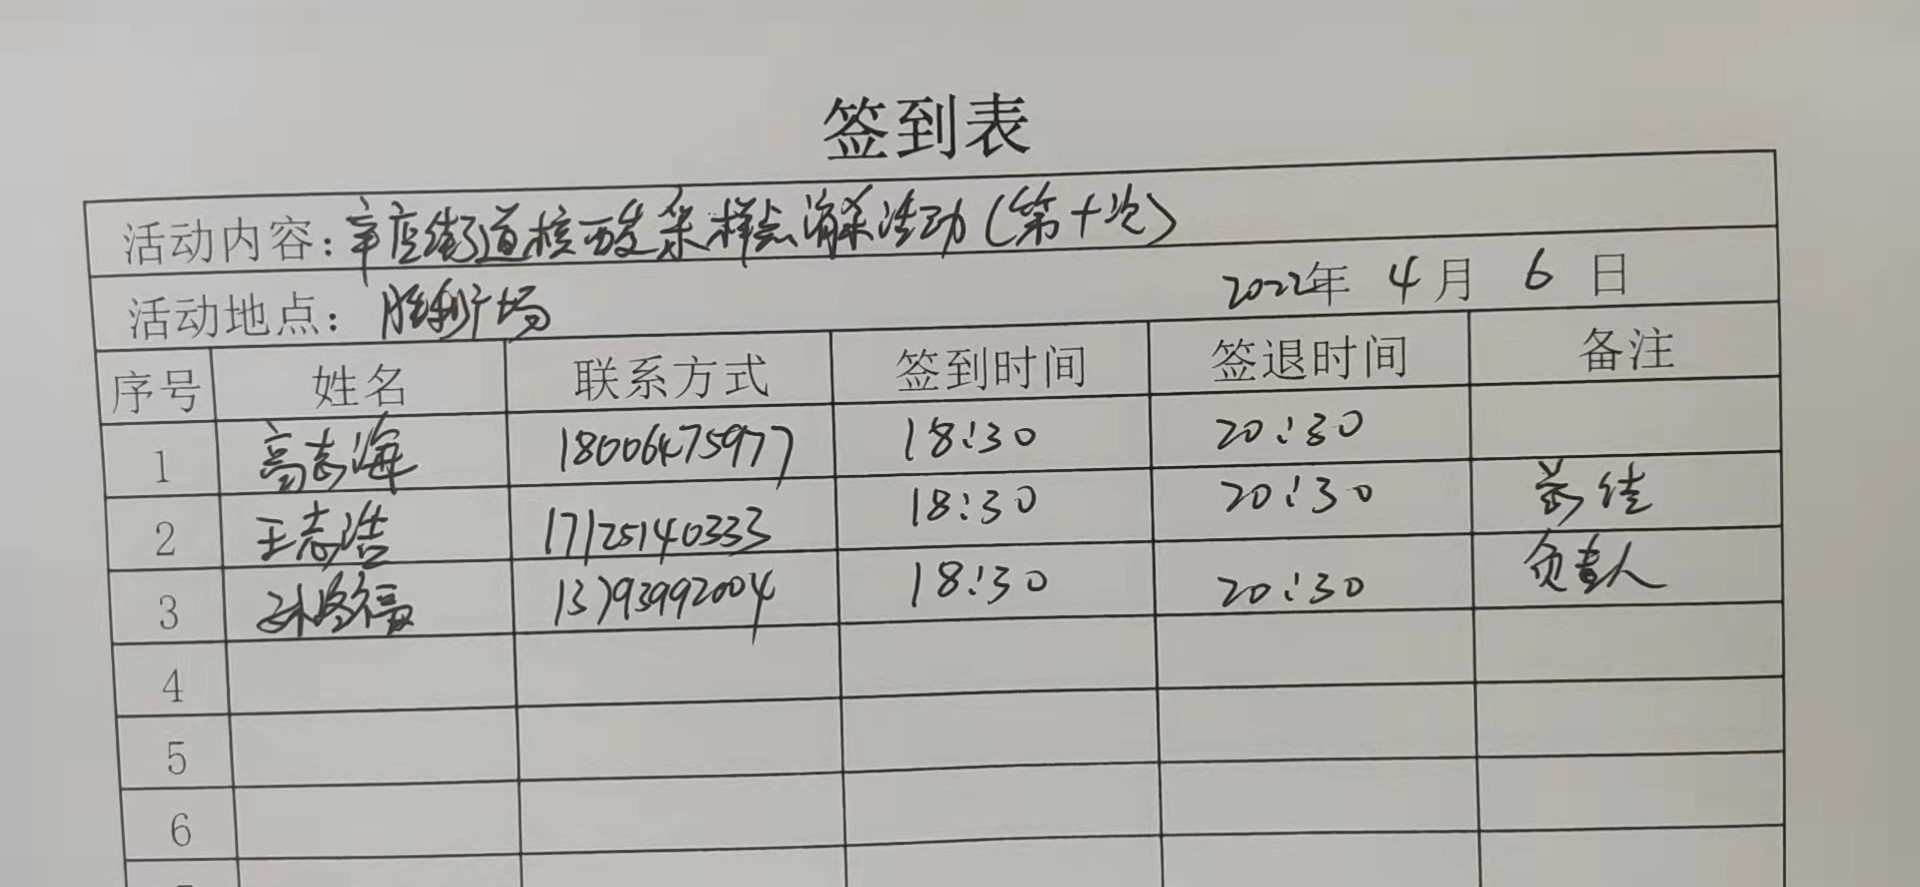 签到表
活动内容：辛店街道核酸采样点消杀活动（第十次）
活动地点：胜利广场 2022年 4月 6日
序号 姓名 联系方式 签到时间 签退时间 备注
1 高志海 18006475977 18:30 20:30
2 王志浩 17125140333 18:30 20:30
3 孙 福 13793992004 18:30 20:30 负责人
4
5
6